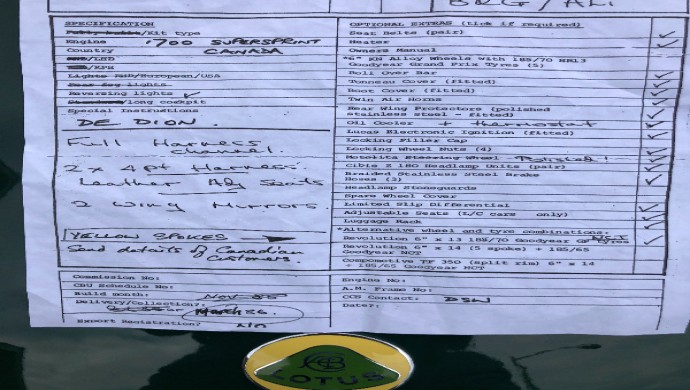 BRG/ALI
SPECIFICATION
Fully built/Kit type
Engine 1700 SUPERSPRINT
Country CANADA
RHD/LHD
/KPH
Lights RHD/European/USA
Rear fog lights
Reversing lights ✓
Standard/long cockpit
Special Instructions
DE DION.
Full Harness
2 x 4 Pt Harness.
Leather Adj Seats
2 Wing Mirrors.
YELLOW SPOKES
Send details of Canadian
Customers.
OPTIONAL EXTRAS (tick if required)
Seat Belts (pair)
Heater
Owners Manual
*6" KN Alloy Wheels with 185/70 HR13
Goodyear Grand Prix Tyres (5)
Roll Over Bar
Tonneau Cover (fitted)
Boot Cover (fitted)
Twin Air Horns
Rear Wing Protectors (polished
stainless steel - fitted)
Oil Cooler + thermostat
Lucas Electronic Ignition (fitted)
Locking Filler Cap
Locking Wheel Nuts (4)
Motolita Steering Wheel - Polished!
Cibie Z 180 Headlamp Units (pair)
Braided Stainless Steel Brake
Hoses (3)
Headlamp Stoneguards
Spare Wheel Cover
Limited Slip Differential
Adjustable Seats (L/C cars only)
Luggage Rack
*Alternative wheel and tyre combinations:
Revolution 6" x 13 185/70 Goodyear GP Tyres NCT
Revolution 6" x 14 (5 spoke) + 185/65
Goodyear NCT
Compomotive TF 350 (split rim) 6" x 14
+ 185/65 Goodyear NCT
Commission No:
CBU Schedule No:
Build Month: NOV 85
Delivery/Collection?:
March 86.
Export Registration? N/A
Engine No:
A.M. Frame No:
CCS Contact: DSW
Date?:
LOTUS